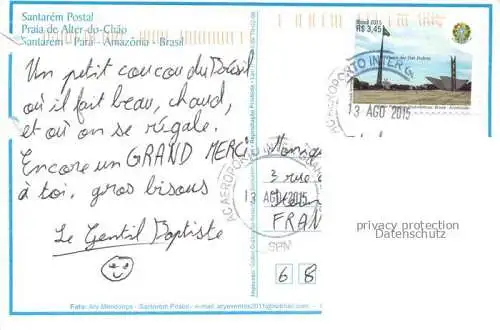 Santarém Postal
Praia de Alter-do-Chão
Santarém - Pará - Amazônia - Brasil
Un petit coucou du Brésil
où il fait beau, chaud,
et où on se régale.
Encore un GRAND MERCI
à toi, gros bisous
Le Gentil Baptiste
Brasil 2015
R$ 3,45
13 AGO 2015
AC AEROPORTO INTER
13 AGO 2015
3 rue
FRAN
68
privacy protection
Datenschutz
Foto: Ary Mendonça - Santarém Postal - e-mail: